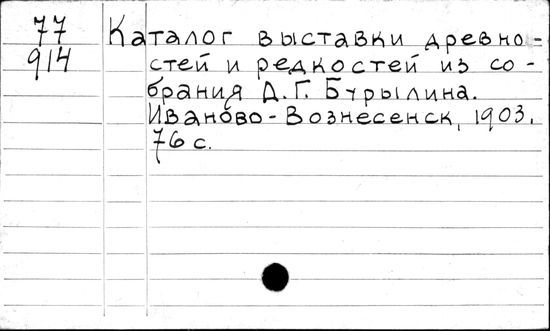 77 Каталог выставки древно-
914 стей и редкостей из со-
брания Д.Г. Бурылина.
Иваново-Вознесенск, 1903.
76 с.